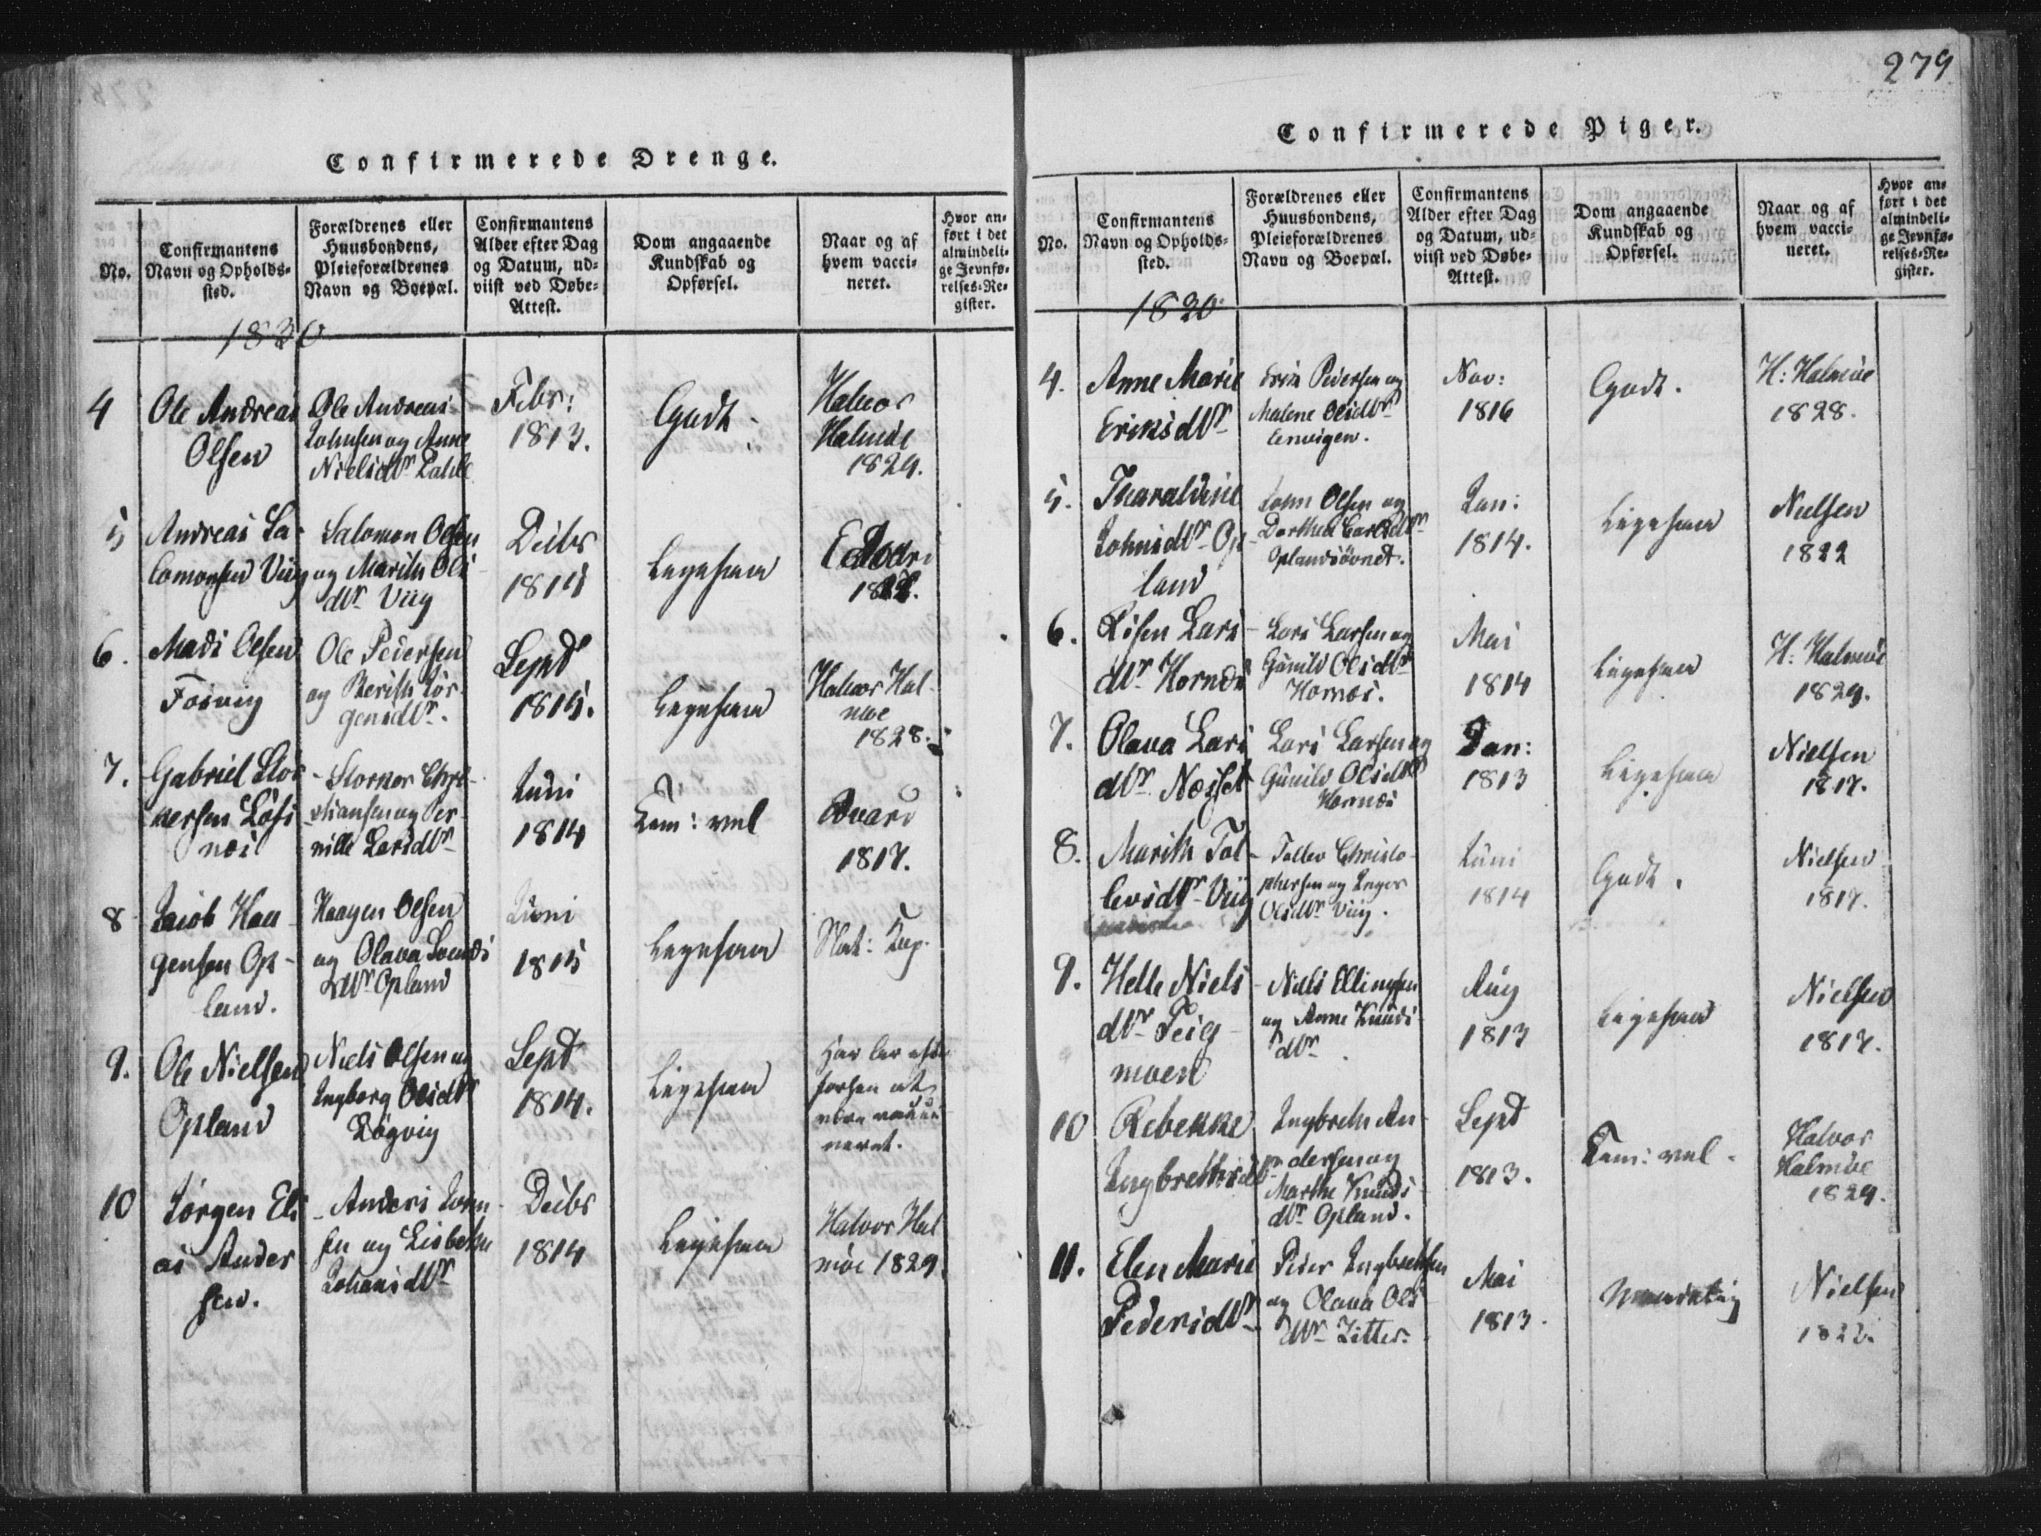 279
Confirmerede Drenge.
No.
Confirmantens
Navn og Opholds-
sted.
Forældrenes eller
Huusbondens,
Pleieforældrenes
Navn og Boepæl.
Confirmantens
Alder efter Dag
og Datum, ud-
viist ved Døbe-
Attest.
Dom angaaende
Kundskab og
Opførsel.
Naar og af
hvem vacci-
neret.
Hvor an-
ført i det
almindeli-
ge Jevnfø-
relses-Re-
gister.
1830
4
Ole Andreas
Olsen
Ole Andreas
Johnsen og Anne
Nielsdtr
Febr:
1813.
Godt.
Halvor
Halmöe
1829.
5
Andreas Sa-
lomonsen Viig
Salomon Olsen
og Marith Ols
dtr Viig
Decbr
1814
Ligesaa
6.
Mads Olsen
Fosvig
Ole Pedersen
og Berith Jör-
gensdtr.
Septr
1815.
Ligesaa
Halvor Hal-
moe
1828.
7.
Gabriel Stor
kersen
Storker Chri-
stiansen og Per-
nille Larsdtr
Juni
1814
Tem: vel
1817.
8
Jacob Haa-
gensen Op-
land.
Haagen Olsen
og Olava
dtr Opland
Juni
1815
Ligesaa
Nat: Kop.
9.
Ole Nielsen
Opland
Niels Olsen og
Ingborg Olsdtr
Sept
1814.
Ligesaa
neret.
10
Jörgen Eli
as Ander
sen.
Anders John
sen og Lisbeth
Johansdtr
Decbr
1814
Ligesaa
Halvor Hal
möe 1829.
Confirmerede Piger.
No.
Confirmantens
Navn og Opholds-
sted.
Forældrenes eller
Huusbondens,
Pleieforældrenes
Navn og Boepæl.
Confirmantens
Alder efter Dag
og Datum, ud-
viist ved Døbe-
Attest.
Dom angaaende
Kundskab og
Opførsel.
Naar og af
hvem vacci-
neret.
Hvor an-
ført i det
almindeli-
ge Jevnfø-
relses-Re-
gister.
1830
4.
Anne Marie
Eriksdtr
Erik Pedersen og
Malene Olsdtr
Nov:
1816
Godt.
H: Halmöe
1828.
5.
Tharaldine
Johnsdtr Op-
land
John Olsen og
Dorthea Carlsdtr
Jan:
1814.
Ligesaa
Nielsen
1822
6.
Lars
dtr Hornæs
Lars Larsen og
Gunild Olsdtr
Hornæs.
Mai
1814
Ligesaa
H: Halmöe
1829.
7.
Olava Lars
dtr Næsset
Lars Larsen og
Gunild Olsdtr
Hornæs
Jan:
1813
Ligesaa
Nielsen
1817.
8.
Marith Tol-
levsdtr Viig
Tollev Christo-
phersen og Inger
Olsdtr Viig.
Juni
1814
Godt.
Nielsen
1817.
9.
Helle Niels
dtr Teig-
moen
Niels Ellingsen
og Anne Knuds-
dtr
Aug
1813
Ligesaa
Nielsen
1817.
10
Rebekke
Ingbrethsdtr
Ingbreth An-
dersen og
Marthe Knuds
dtr Opland.
Sept
1813.
Tem: vel.
Halvor
Halmöe
1829.
11.
Elen Marie
Pedersdtr
Peder Ingbrethsen
og Olava Ols
dtr
Mai
1813.
Nielsen
1822.